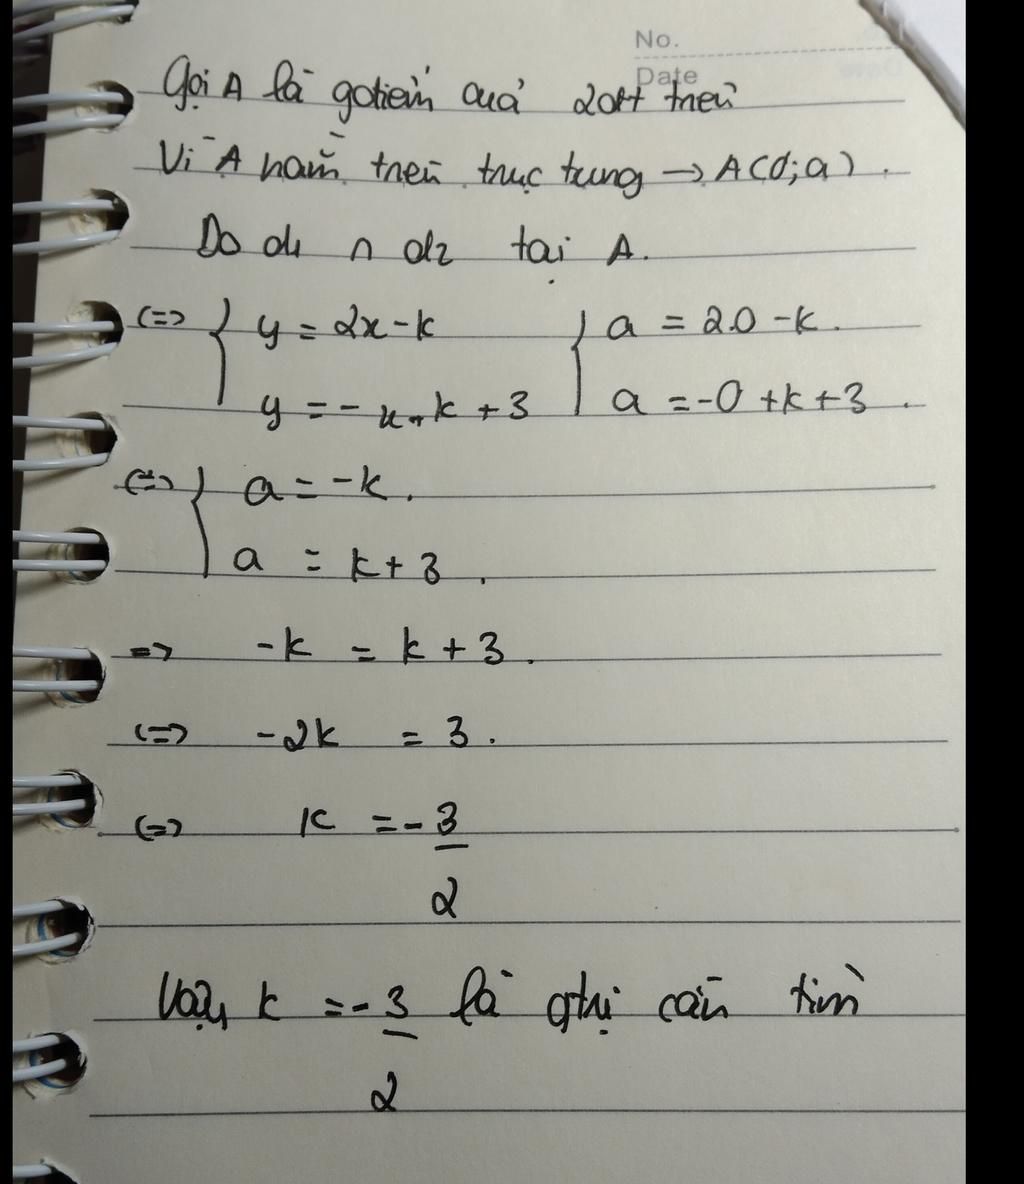 No.
Date
Gọi A là gđiểm của 2 đtt trên
Vì A nằm trên trục tung → A(0;a).
Do d1 ∩ d2 tại A.
<=> { y = 2x - k { a = 2.0 - k.
y = -x + k + 3 a = -0 + k + 3.
<=> { a = -k.
a = k + 3.
=> -k = k + 3.
<=> -2k = 3.
<=> k = -3/2
Vậy k = -3/2 là gtrị cần tìm